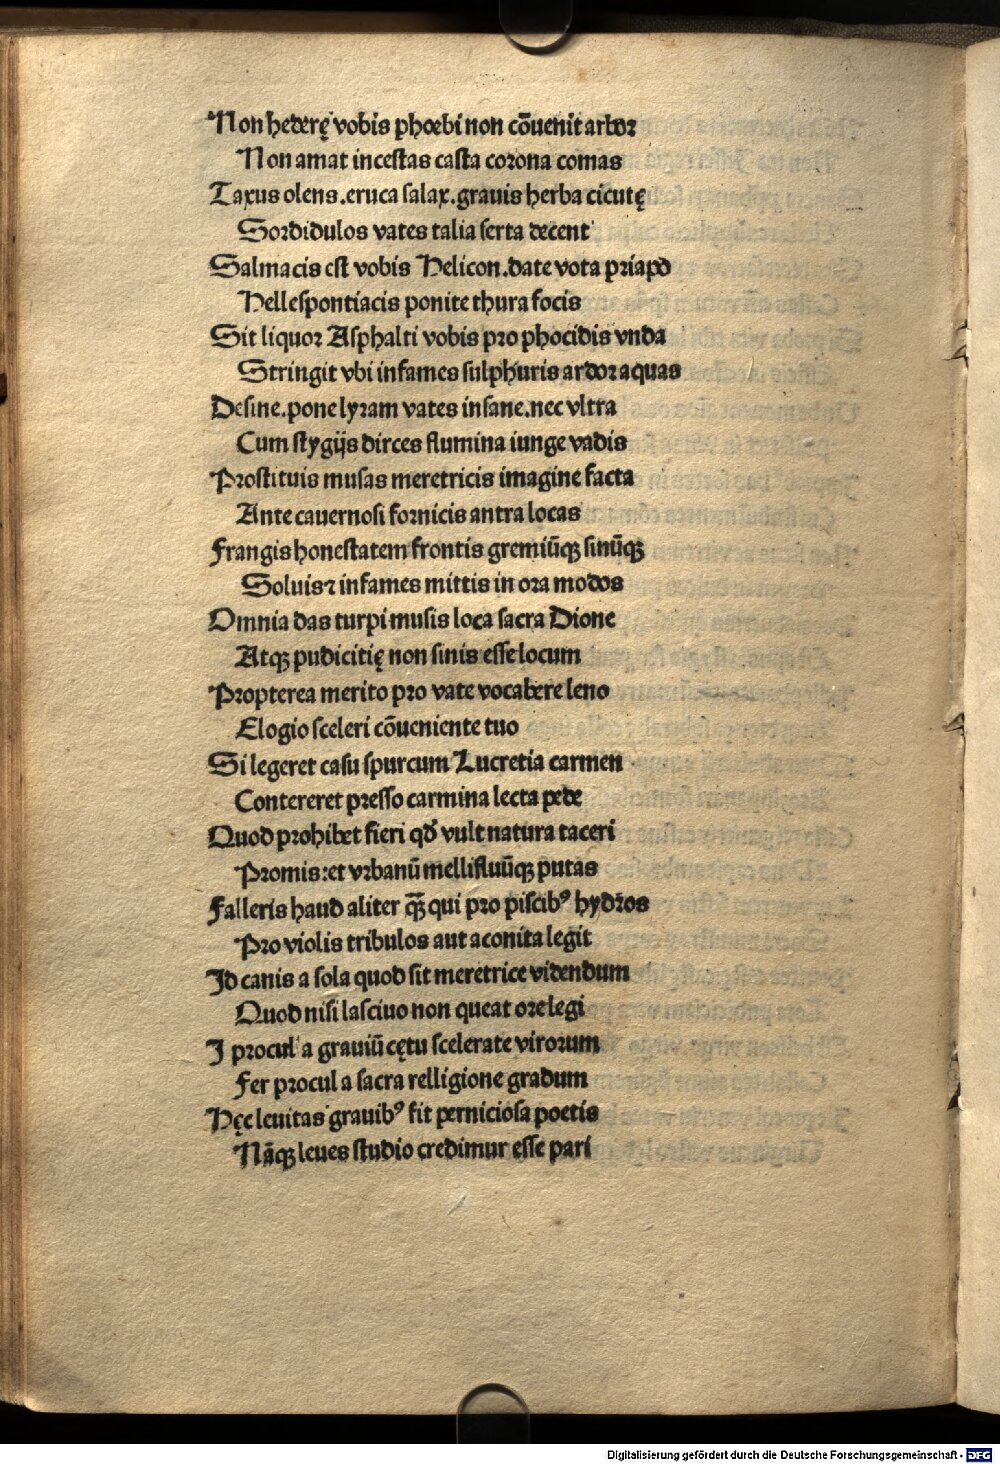 Non hederę vobis phœbi non cōuenit arbor
Non amat incestas casta corona comas
Taxus olens.eruca salax.grauis herba cicutę
Sordidulos vates talia serta decent
Salmacis est vobis Helicon.date vota priapo
Hellespontiacis ponite thura focis
Sit liquor Asphalti vobis pro phocidis vnda
Stringit vbi infames sulphuris ardor aquas
Desine.pone lyram vates insane.nec vltra
Cum stygijs dirces flumina iunge vadis
Prostituis musas meretricis imagine facta
Ante cauernosi fornicis antra locas
Frangis honestatem frontis gremiūqꝫ sinūqꝫ
Soluis ⁊ infames mittis in ora modos
Omnia das turpi musis loca sacra Dione
Atqꝫ pudicitię non sinis esse locum
Propterea merito pro vate vocabere leno
Elogio sceleri cōueniente tuo
Si legeret casu spurcum Lucretia carmen
Contereret presso carmina lecta pede
Quod prohibet fieri qđ vult natura taceri
Promis:et vrbanū mellifluūqꝫ putas
Falleris haud aliter qꝫ̄ qui pro piscibꝰ hydros
Pro violis tribulos aut aconita legit
Id canis a sola quod sit meretrice videndum
Quod nisi lasciuo non queat ore legi
I procul a grauiū cętu scelerate virorum
Fer procul a sacra relligione gradum
Hęc leuitas grauibꝰ fit perniciosa poetis
Nāqꝫ leues studio credimur esse pari
Digitalisierung gefördert durch die Deutsche Forschungsgemeinschaft - DFG